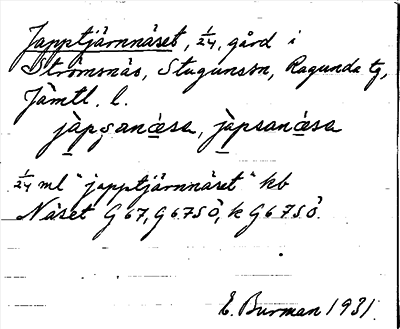 Japptjärnnäset, 1/24, gård i
Strömsnäs, Stugunsön, Ragunda tg,
Jämtl. l.
jàpsanǽsa, jàpsanǽsa
1/24 ml "japptjärnnäset" kb
Näset G67, G67SÖ, k G67SÖ.
E. Burman 1931.